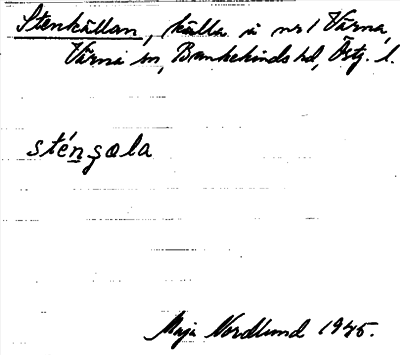 Stenkällan, källa i nr 1 Värna,
Värna sn, Bankekinds hd, Östg. l.
sténçæla
Maja Nordlund 1945.